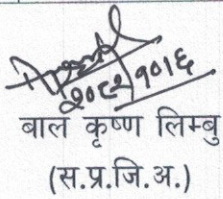 २०८२।१०।६
बाल कृष्ण लिम्बु
(स.प्र.जि.अ.)